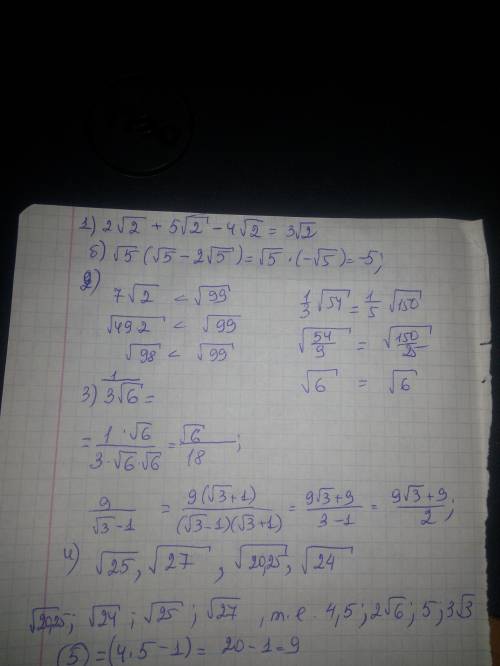 1) 2√2 + 5√2 - 4√2 = 3√2
б) √5 (√5 - 2√5) = √5 · (-√5) = -5;
2)
7√2 < √99    1/3 √54 = 1/5 √150
√49 2 < √99    √54/9 = √150/25
√98 < √99    √6 = √6
3) 1/3√6 =
= 1·√6/3·√6·√6 = √6/18 ;
9/√3-1 = 9(√3+1)/(√3-1)(√3+1) = 9√3+9/3-1 = 9√3+9/2 ;
4) √25, √27 , √20,25, √24
√20,25; √24 ; √25 ; √27 , т.е. 4,5; 2√6; 5; 3√3
(5) = (4·5-1) = 20-1=9